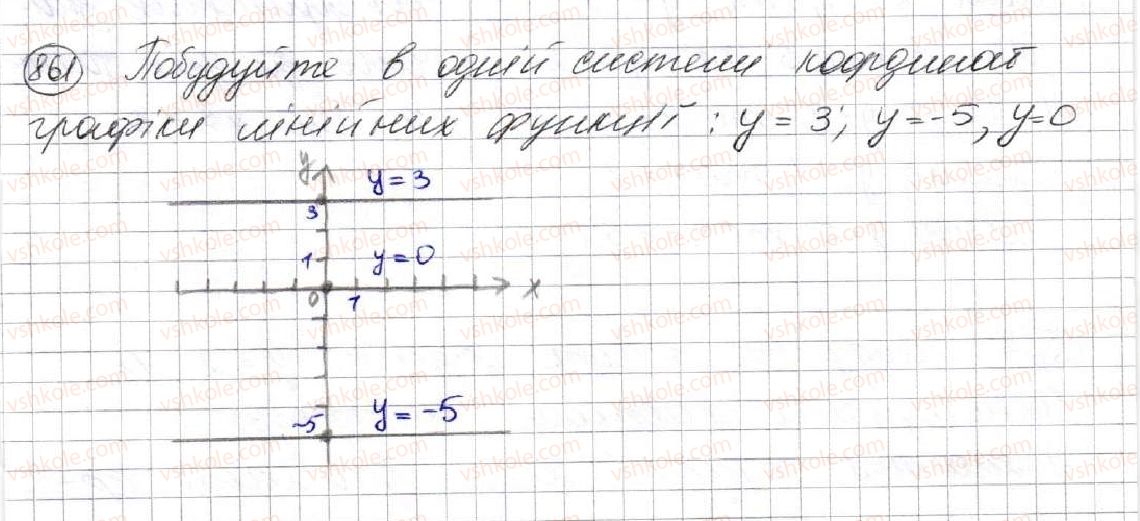 861 Побудуйте в одній системі координат
графіки лінійних функцій : y = 3; y = -5, y = 0
y
y = 3
3
1
y = 0
0
1
x
-5
y = -5
vshkole.com